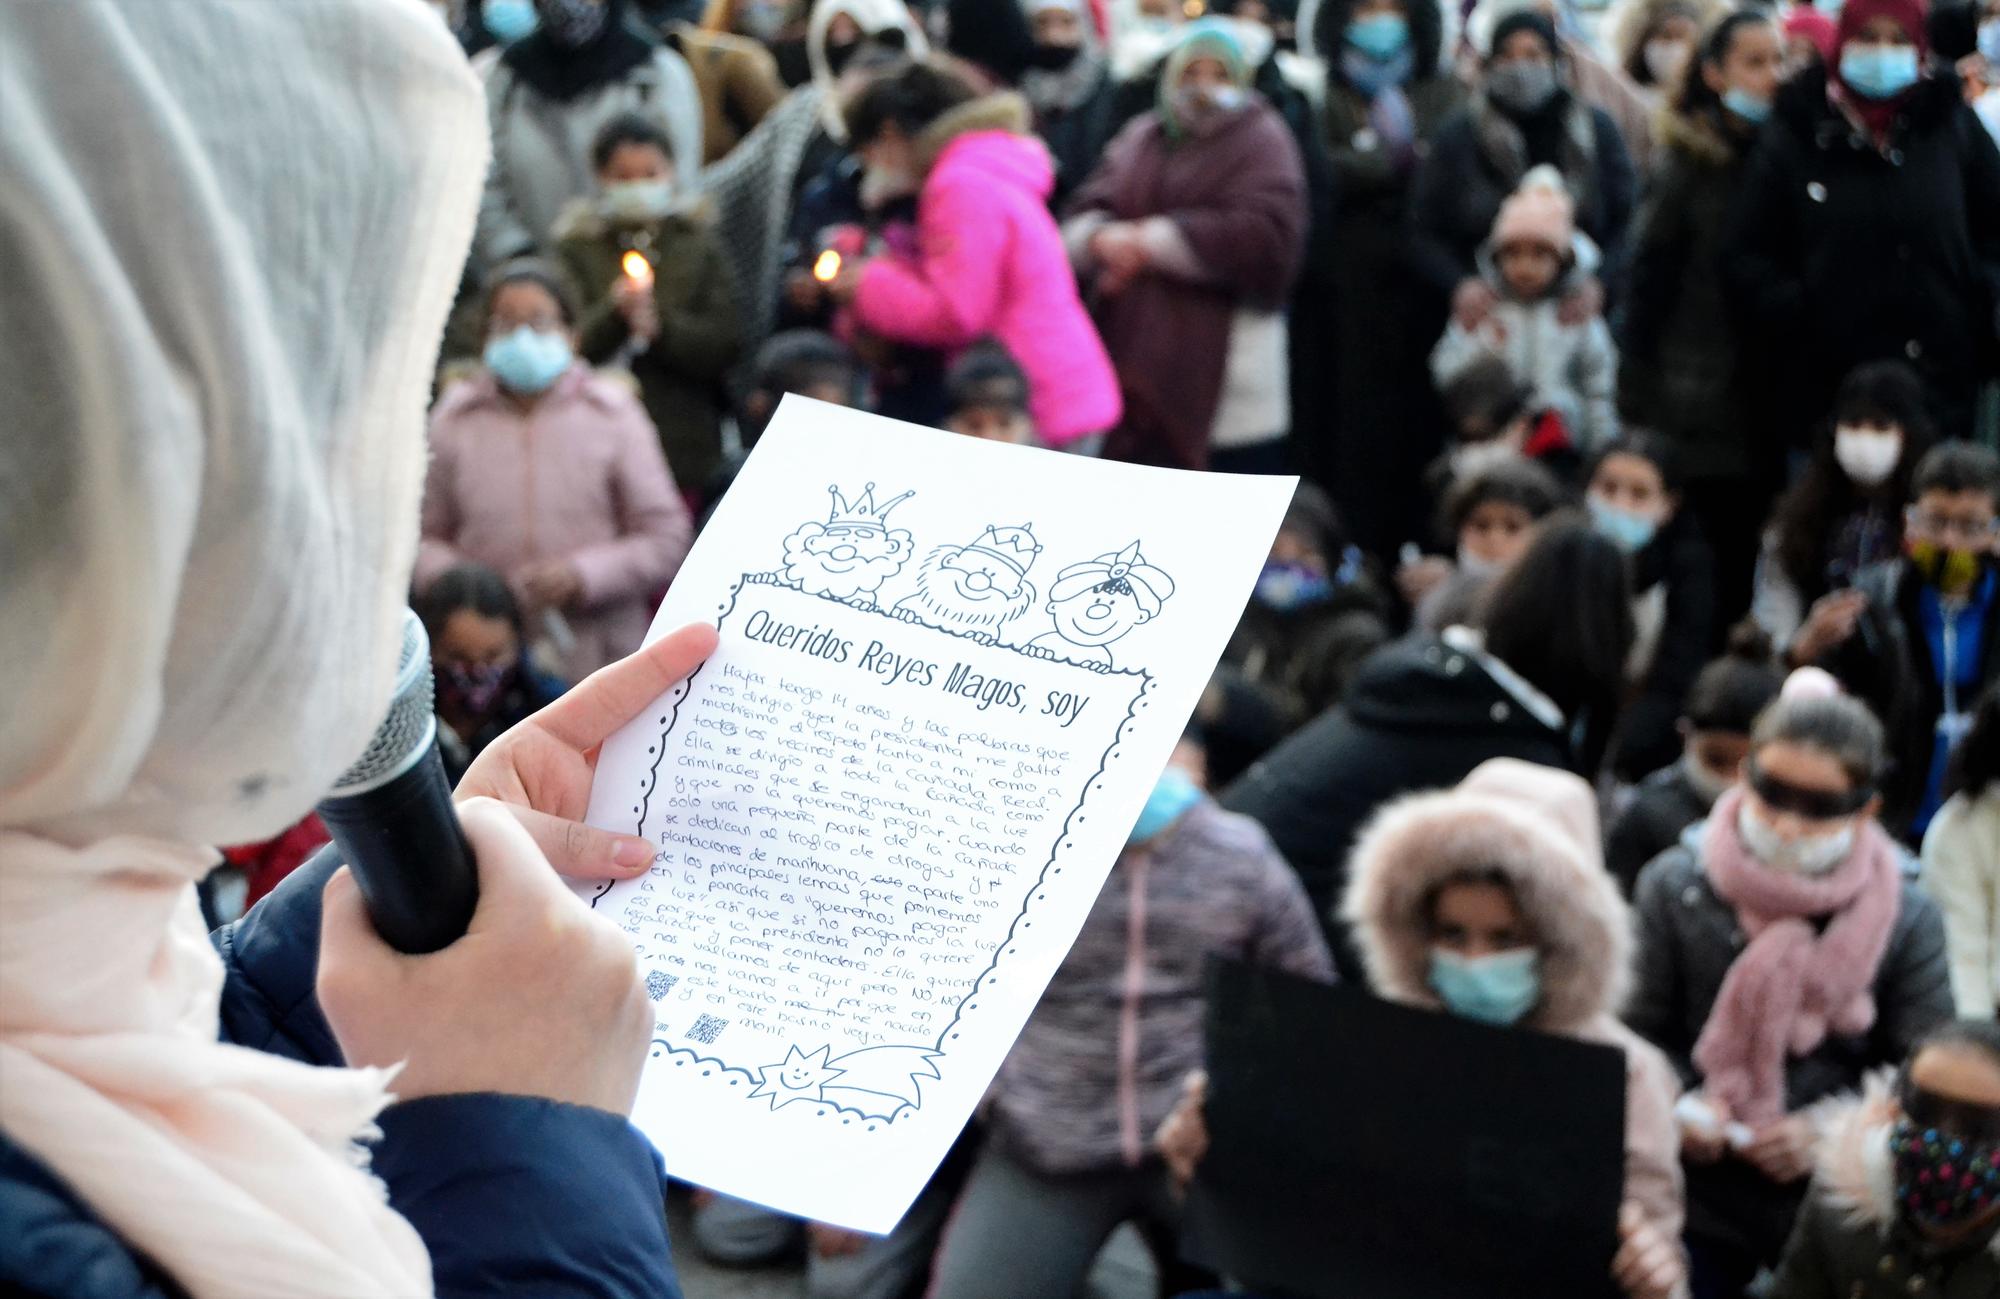 Queridos Reyes Magos, soy
Hajar tengo 14 años y las palabras que
nos dirigio ayer la presidenta me gastó
muchísimo el respeto tanto a mi como a
todos los vecinos de la Cañada Real.
Ella se dirigio a toda la Cañada como
criminales que se enganchan a la luz
y que no la queremos pagar. Cuando
solo una pequeña parte de la Cañada
se dedican al trafico de drogas y
plantaciones de marihuana, aparte uno
de los principales lemas que ponemos
en la pancarta es "queremos pagar
la luz", asi que si no pagamos la luz
es porque la presidenta no lo quiere
legalizar y poner contadores. Ella quiere
que nos vallamos de aqui pero NO, NO
, no nos vamos a ir porque en
este barrio he nacido
y en este barrio voy a
morir.